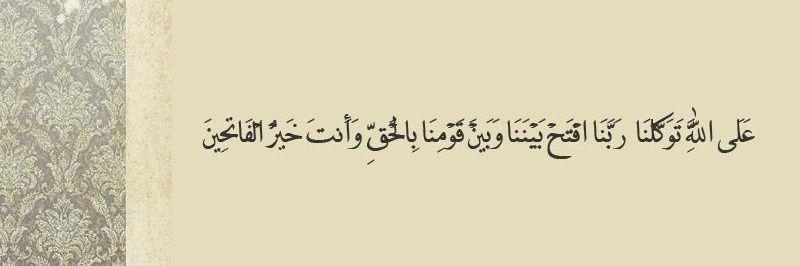 عَلَى اللَّهِ تَوَكَّلْنَا رَبَّنَا افْتَحْ بَيْنَنَا وَبَيْنَ قَوْمِنَا بِالْحَقِّ وَأَنتَ خَيْرُ الْفَاتِحِينَ